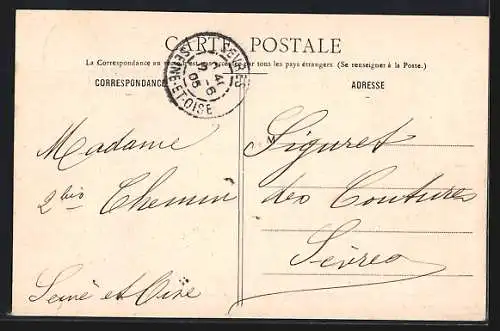 CARTE POSTALE
La Correspondance au recto n'est pas acceptée par tous les pays étrangers (Se renseigner à la Poste.)
CORRESPONDANCE
ADRESSE
SEINE-ET-OISE
05
Madame Siguret
2 bis Chemin des Coutures
Sèvres
Seine et Oise